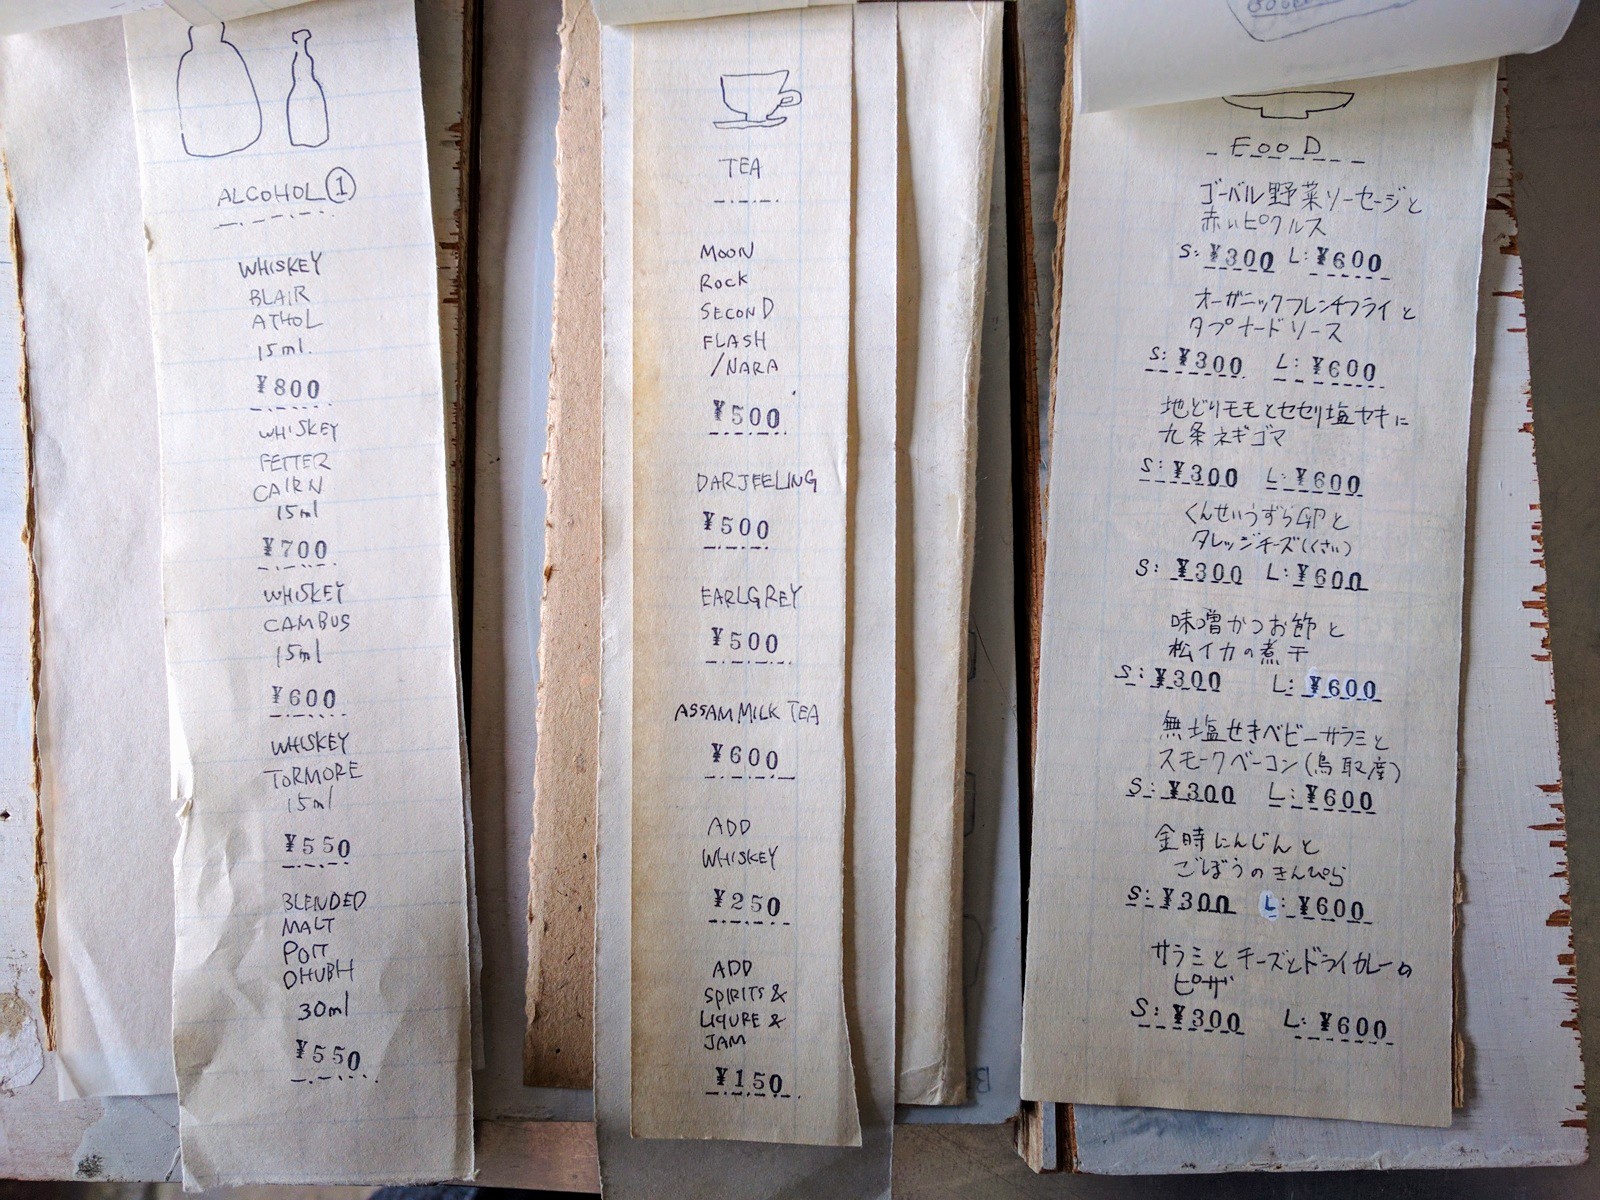 ALCOHOL ①
WHISKEY
BLAIR
ATHOL
15ml.
¥800
WHISKEY
FETTER
CAIRN
15ml
¥700
WHISKEY
CAMBUS
15ml
¥600
WHISKEY
TORMORE
15ml
¥550
BLENDED
MALT
PORT
DHUBH
30ml
¥550
TEA
MOON
ROCK
SECOND
FLASH
/NARA
¥500
DARJEELING
¥500
EARLGREY
¥500
ASSAM MILK TEA
¥600
ADD
WHISKEY
¥250
ADD
SPIRITS &
LIQURE &
JAM
¥150
FOOD
ゴーバル野菜ソーセージと
赤いピクルス
S: ¥300 L: ¥600
オーガニックフレンチフライと
タプナードソース
S: ¥300 L: ¥600
地どりモモとセセリ塩ヤキに
九条ネギゴマ
S: ¥300 L: ¥600
くんせいうずら卵と
タレッジチーズ(くさい)
S: ¥300 L: ¥600
味噌かつお節と
松イカの煮干
S: ¥300 L: ¥600
無塩せきベビーサラミと
スモークベーコン(鳥取産)
S: ¥300 L: ¥600
金時にんじんと
ごぼうのきんぴら
S: ¥300 L: ¥600
サラミとチーズとドライカレーの
ピザ
S: ¥300 L: ¥600